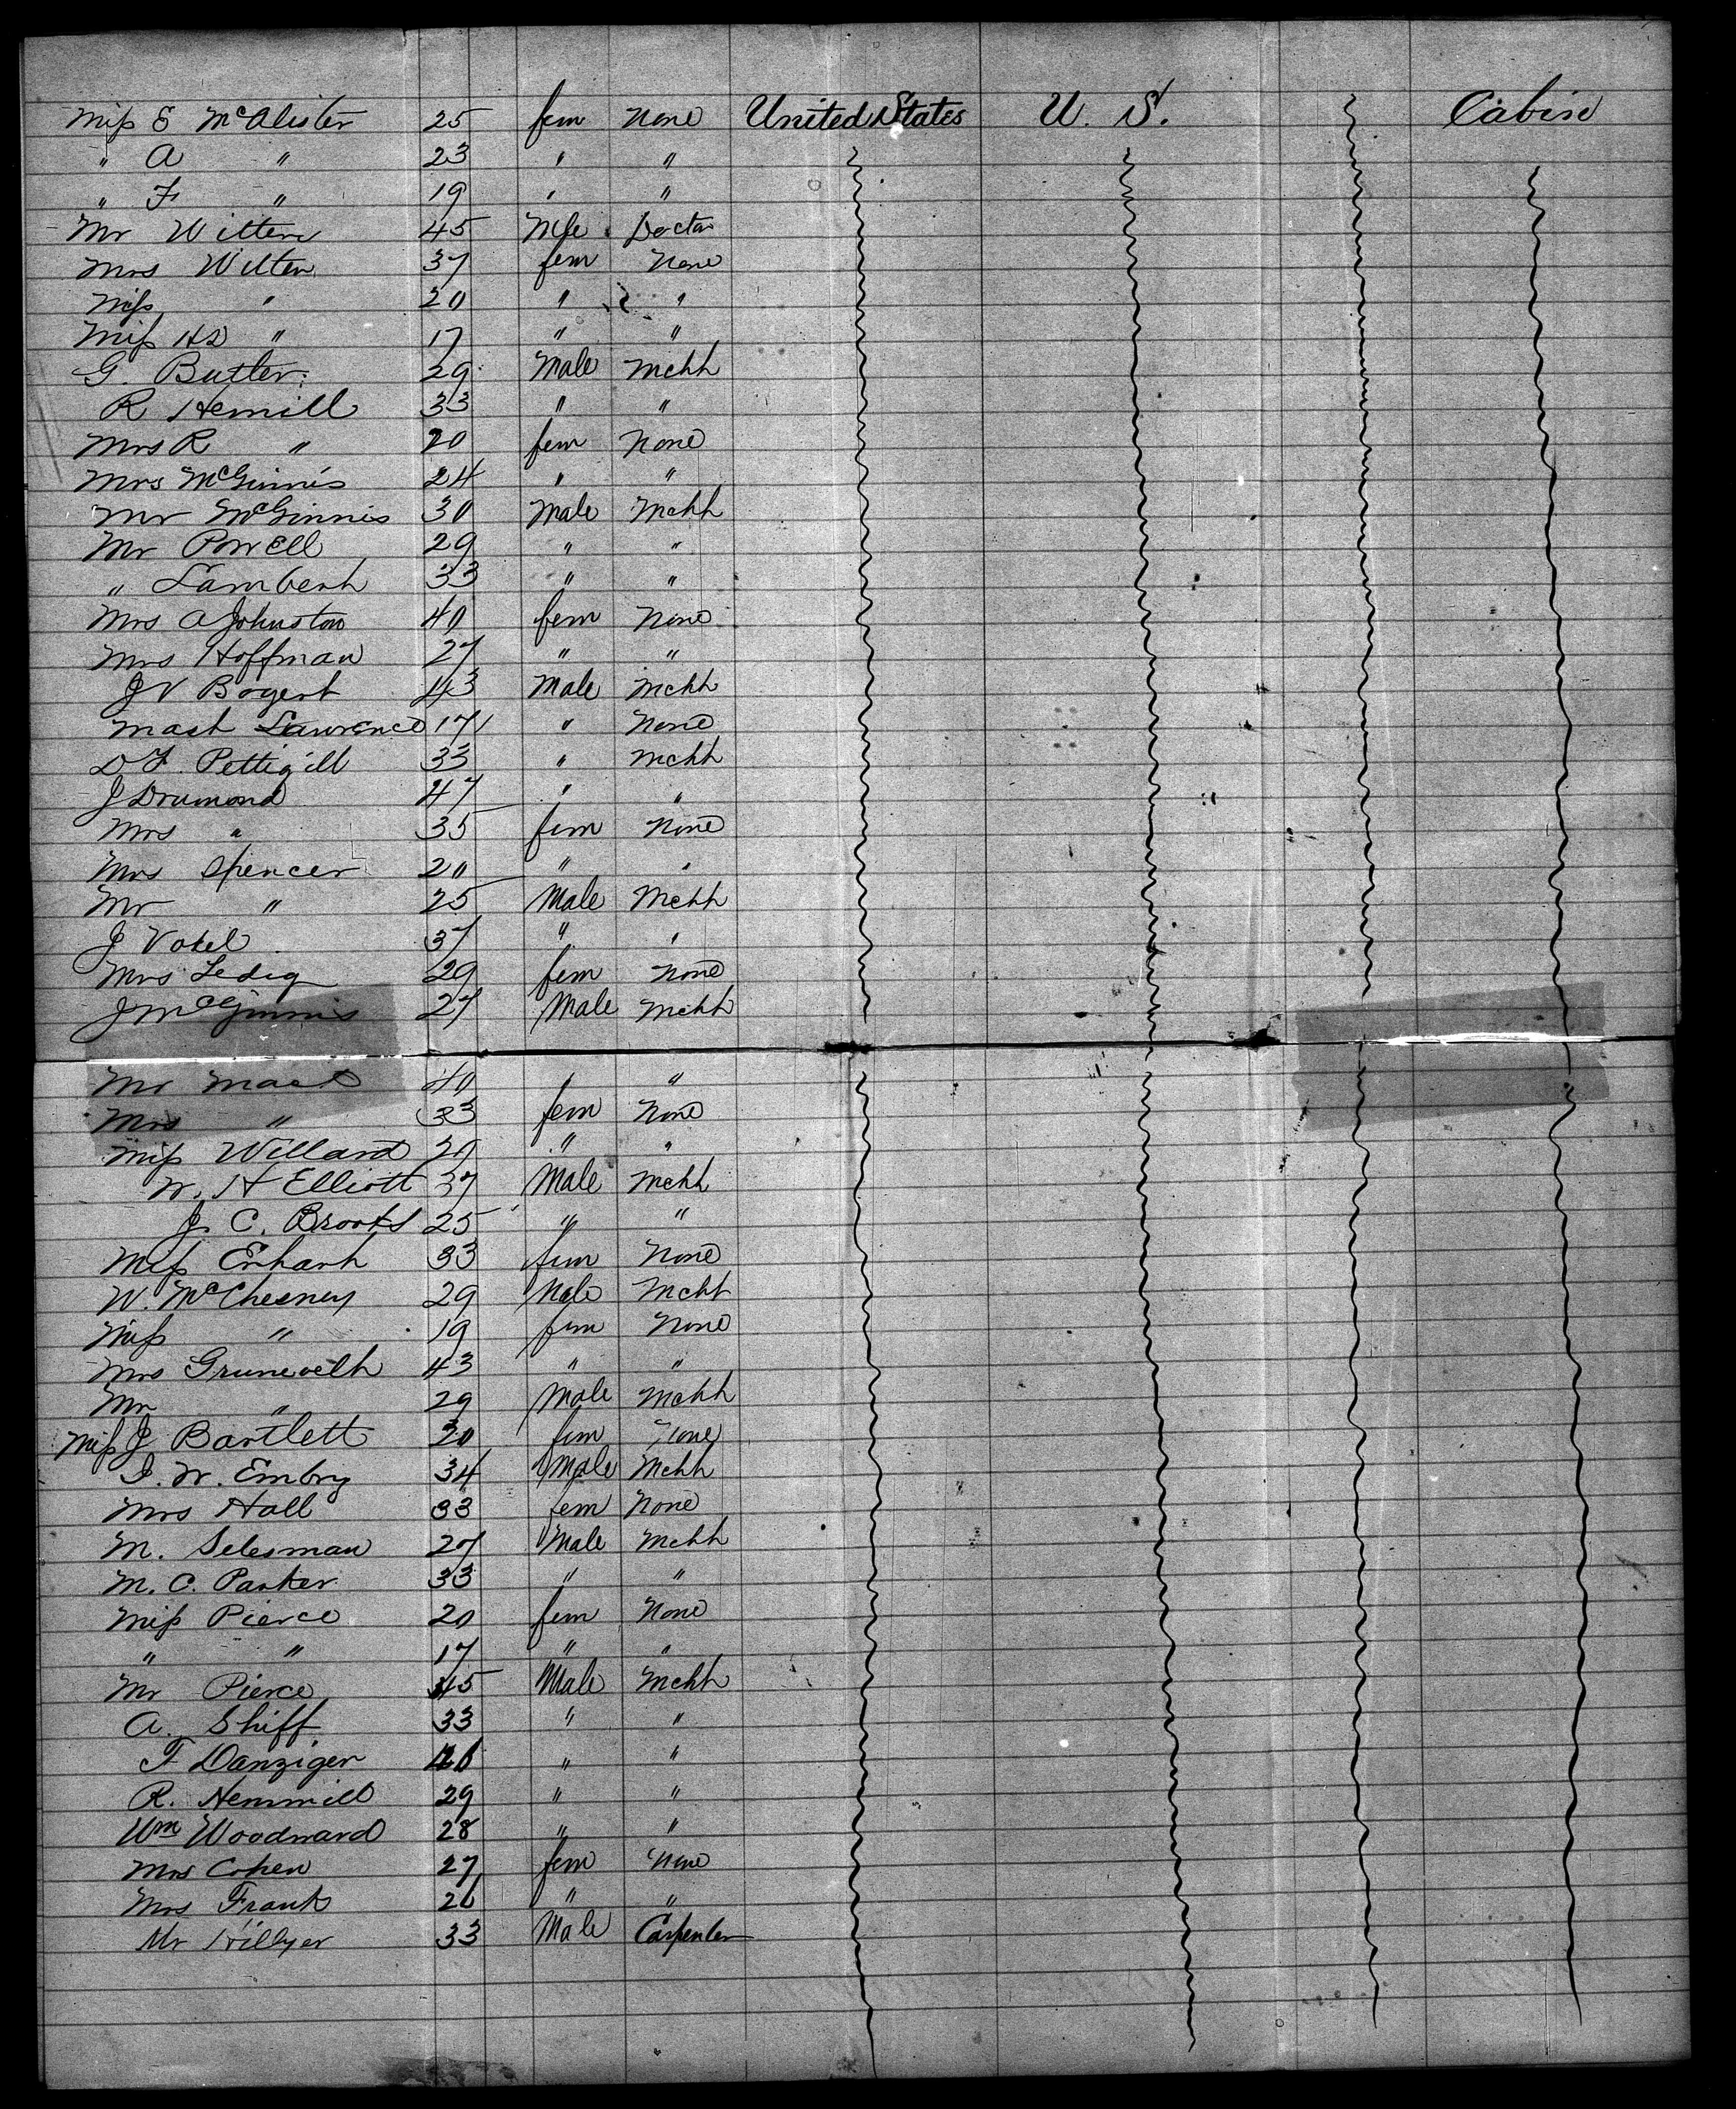 Miss E McAlister 25 fem None United States U. S. Cabin
" A " 23 " "
" F " 19 " "
Mr Witten 45 Mle Doctor
Mrs Witten 37 fem None
Miss " 20 " "
Miss HD " 17 " "
G. Butler 29 Male Mcht
R Hemill 33 " "
Mrs R " 20 fem None
Mrs McGinnis 24 " "
Mr McGinnis 30 Male Mcht
Mr Powell 29 " "
" Lambert 33 " "
Mrs A Johnston 40 fem None
Mrs Hoffman 27 " "
J V Bogert 43 Male Mcht
Mast Lawrence 17 " None
D F. Pettigill 33 " Mcht
J Drumond 47 " "
Mrs " 35 fem None
Mrs Spencer 20 " "
Mr " 25 Male Mcht
J Vokel 37 " "
Mrs Ledig 29 fem None
J McGinnis 27 Male Mcht
Mr Mack 40 " "
Mrs " 33 fem None
Miss Willard 20 " "
W. H Elliott 37 Male Mcht
J. C. Brooks 25 " "
Miss Erhart 33 fem None
W. McChesney 29 Male Mcht
Miss " 19 fem None
Mrs Grunevelh 43 " "
Mr " 29 Male Mcht
Miss J Bartlett 20 fem None
I. W. Embry 34 Male Mcht
Mrs Hall 33 fem None
M. Selesman 27 Male Mcht
M. C. Parker 33 " "
Miss Pierce 20 fem None
" " 17 " "
Mr Pierce 45 Male Mcht
A. Shiff 33 " "
F Danziger " "
R. Hemmill 29 " "
Wm Woodward 28 " "
Mrs Cohen 27 fem None
Mrs Frank 26 " "
Mr Hillyer 33 Male Carpenter